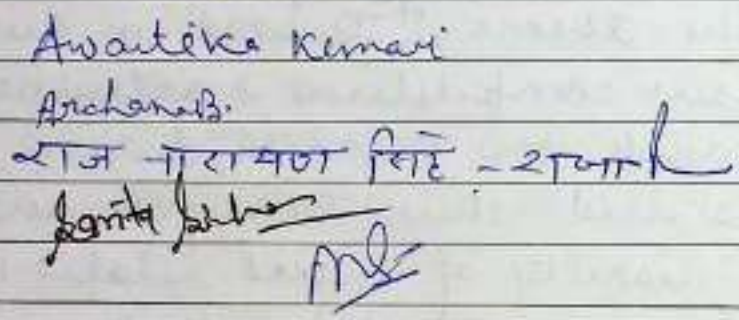 Awanteka Kumari
Archana B.
राज नारायण सिंह -
Sarita Sinha